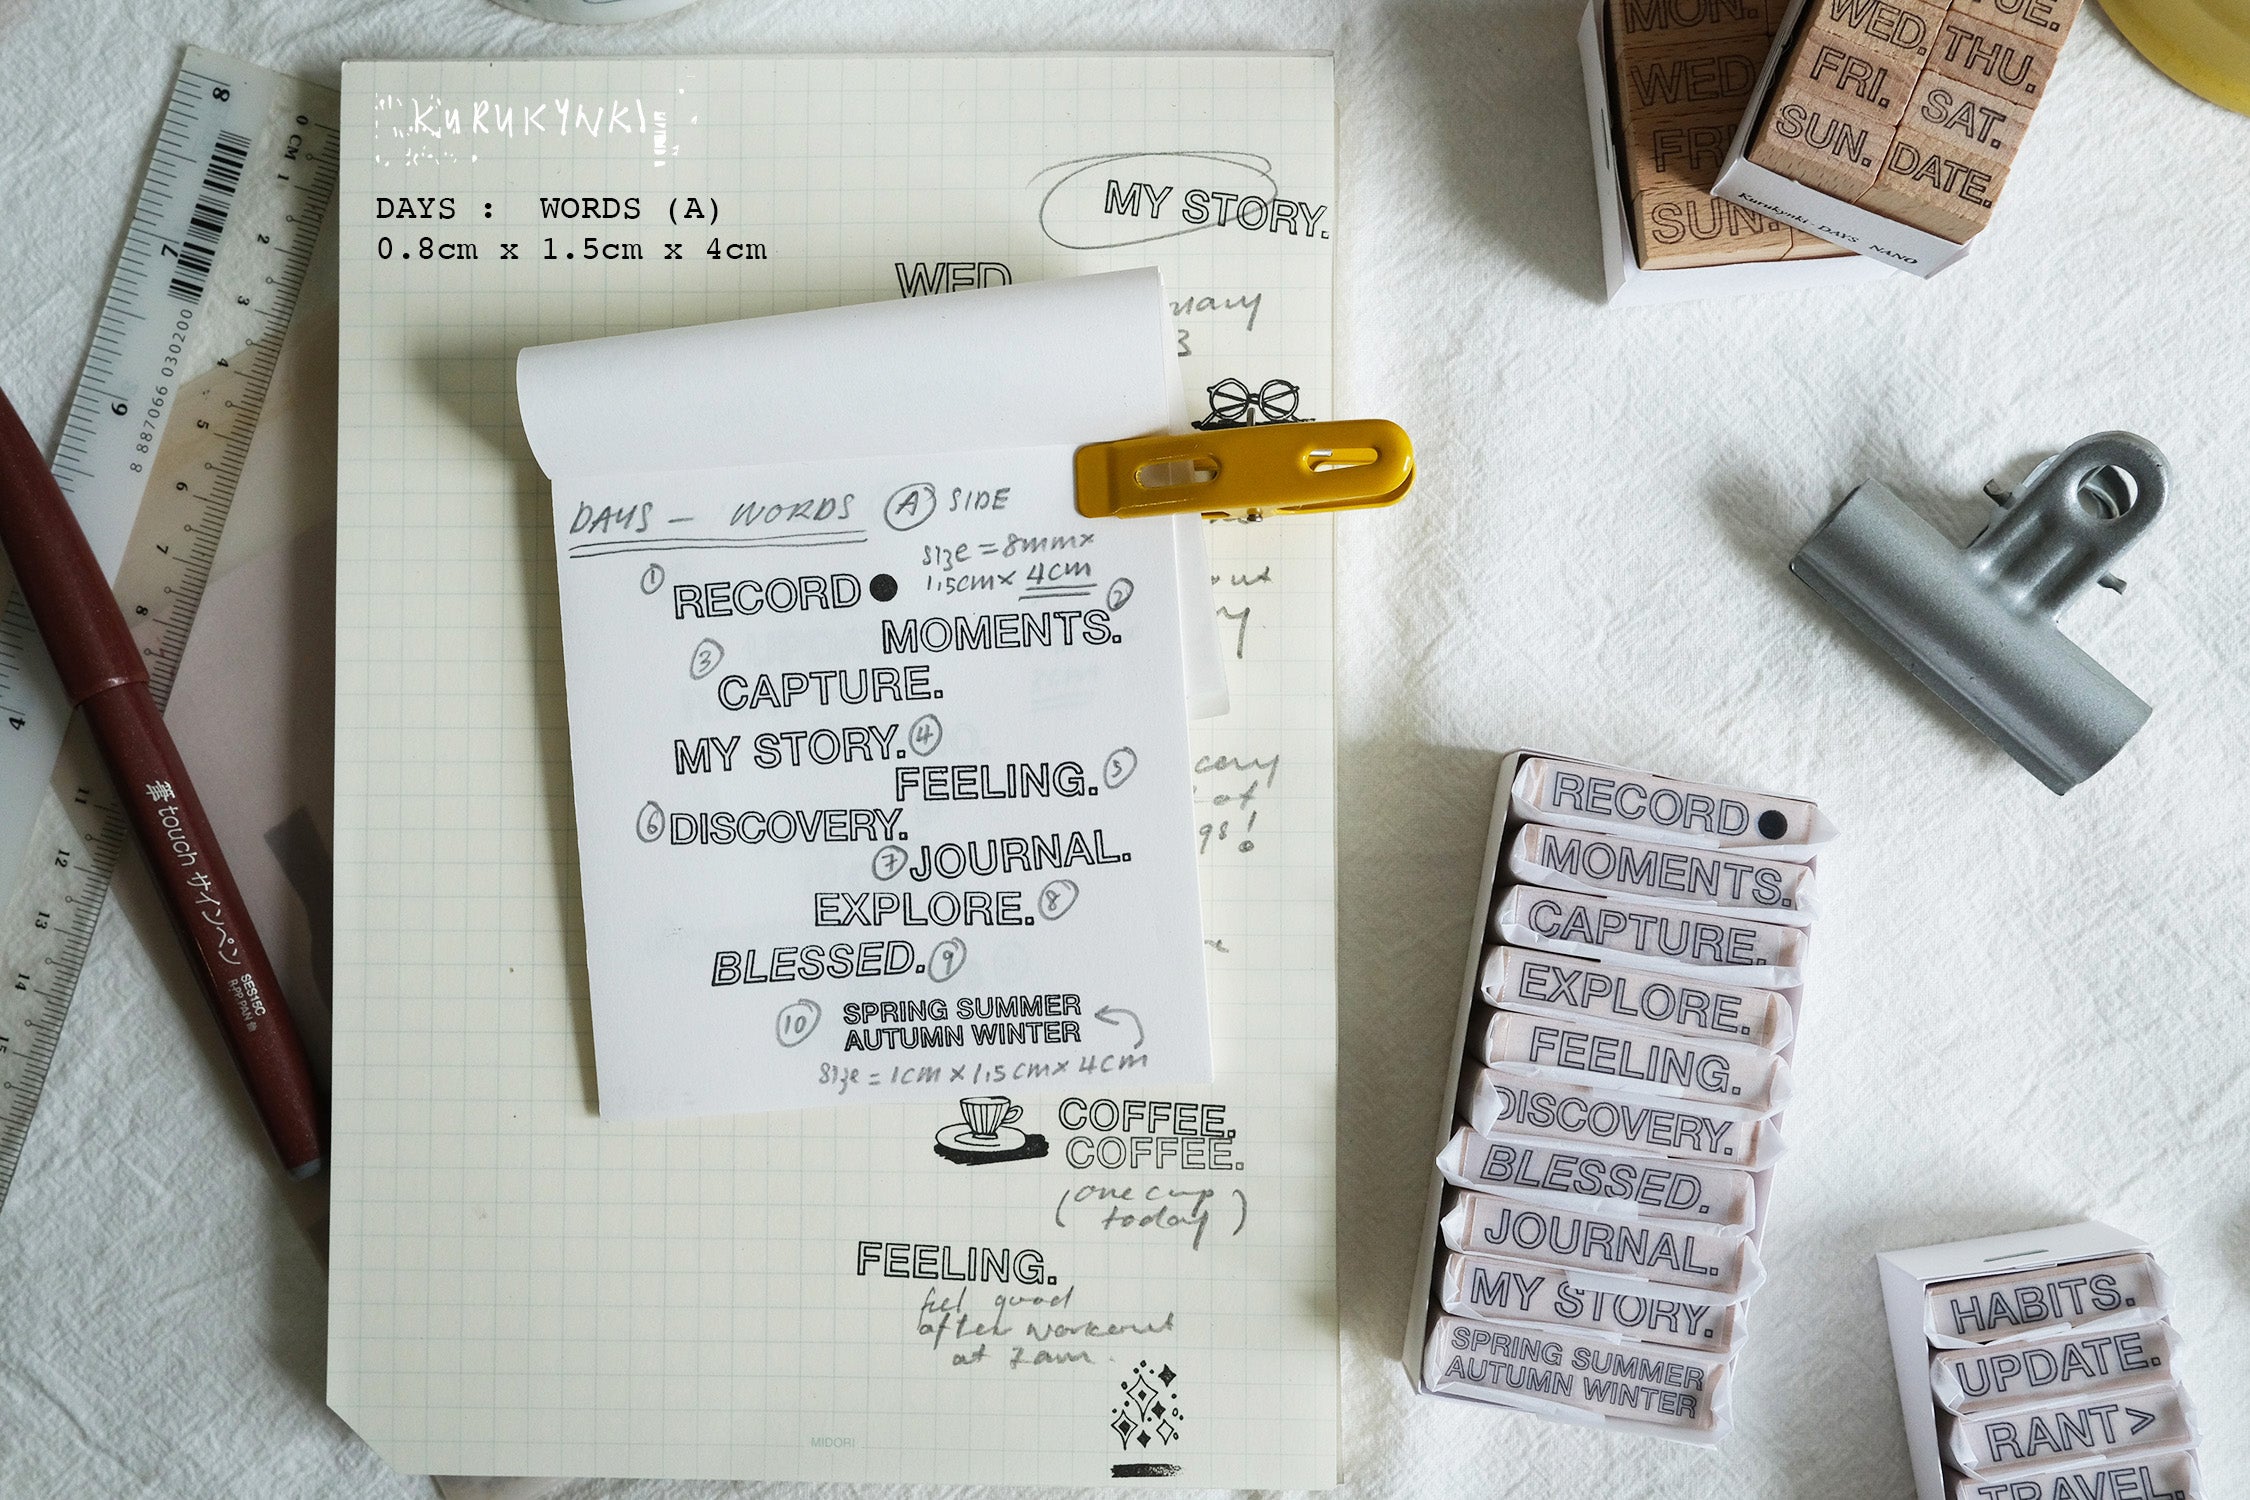 KURUKYNKI
DAYS :  WORDS (A)
0.8cm x 1.5cm x 4cm
MY STORY.
WED
3
DAYS – WORDS Ⓐ SIDE
size = 8mm x
1.5cm x 4cm
① RECORD●
MOMENTS. ②
③ CAPTURE.
MY STORY. ④
FEELING. ⑤
⑥ DISCOVERY.
⑦ JOURNAL.
EXPLORE. ⑧
BLESSED. ⑨
⑩ SPRING SUMMER
AUTUMN WINTER
size = 1cm x 1.5cm x 4cm
COFFEE.
COFFEE.
(one cup
today)
FEELING.
feel good
after workout
at 7am.
MIDORI
8 887066 030200
0 CM 1 2 3 4 5 6 7 8 11 12 13 14 15
8 7 6 4
筆touch サインペン
SES15C
MON.
WED
FRI
SUN.
WED.
TUE.
FRI.
THU.
SUN.
SAT.
DATE.
Kurukynki - DAYS NANO
RECORD●
MOMENTS.
CAPTURE.
EXPLORE.
FEELING.
DISCOVERY.
BLESSED.
JOURNAL.
MY STORY.
SPRING SUMMER
AUTUMN WINTER
HABITS.
UPDATE.
RANT>
TRAVEL.